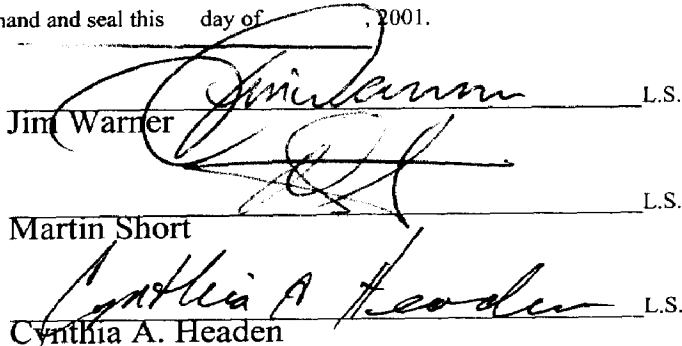 hand and seal this day of , 2001.
Jim Warner L.S.
Jim Warner
L.S.
Martin Short
Cynthia A Headen L.S.
Cynthia A. Headen